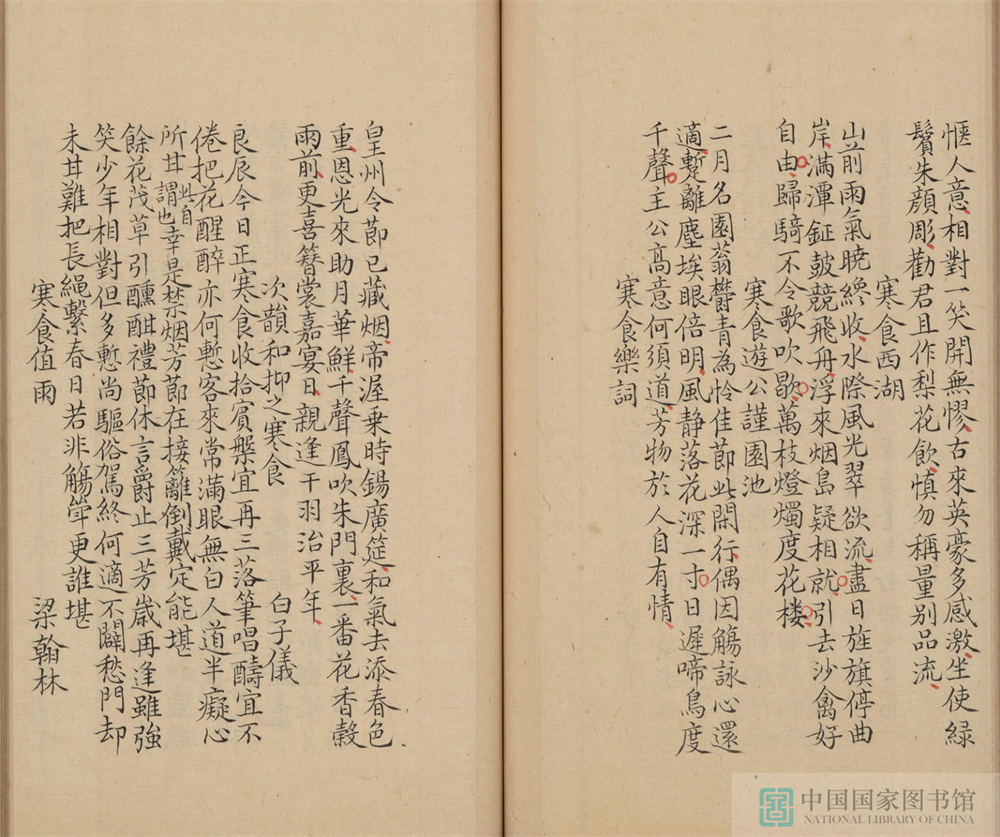 愜人意相對一笑開無慘古來英豪多感激坐使緑
鬢朱顔彫勸君且作梨花飲慎勿稱量别品流
寒食西湖
山前雨氣曉纔收水際風光翠欲流盡日旌旗停曲
岸滿潭鉦皷競飛舟浮來烟島疑相就引去沙禽好
自由歸騎不令歌吹歇萬枝燈燭度花楼
寒食遊公謹園池
二月名園蓊欝青為怜佳節此閑行偶因觴詠心還
適蹔離塵埃眼倍明風静落花深一寸日遲啼鳥度
千聲主公高意何須道芳物於人自有情
寒食樂詞
皇州令莭已藏烟帝渥乗時錫廣筵和氣去添春色
重恩光來助月華鮮千聲鳳吹朱門裏一番花香榖
雨前更喜簪裳嘉宴日親逢干羽治平年
次韻和抑之寒食 白子儀
良辰今日正寒食收拾賓槃宜再三落筆唱醻宜不
倦把花醒醉亦何慙客來常滿眼無白人道半癡心
所甘此自謂也幸是禁烟芳節在接籬倒戴定能堪
餘花茂草引醺酣禮莭休言爵止三芳歲再逢雖強
笑少年相對但多慙尚驅俗駕終何適不闢愁門却
未甘難把長繩繫春日若非觴斚更誰堪
寒食值雨 梁翰林
中国国家图书馆
NATIONAL LIBRARY OF CHINA